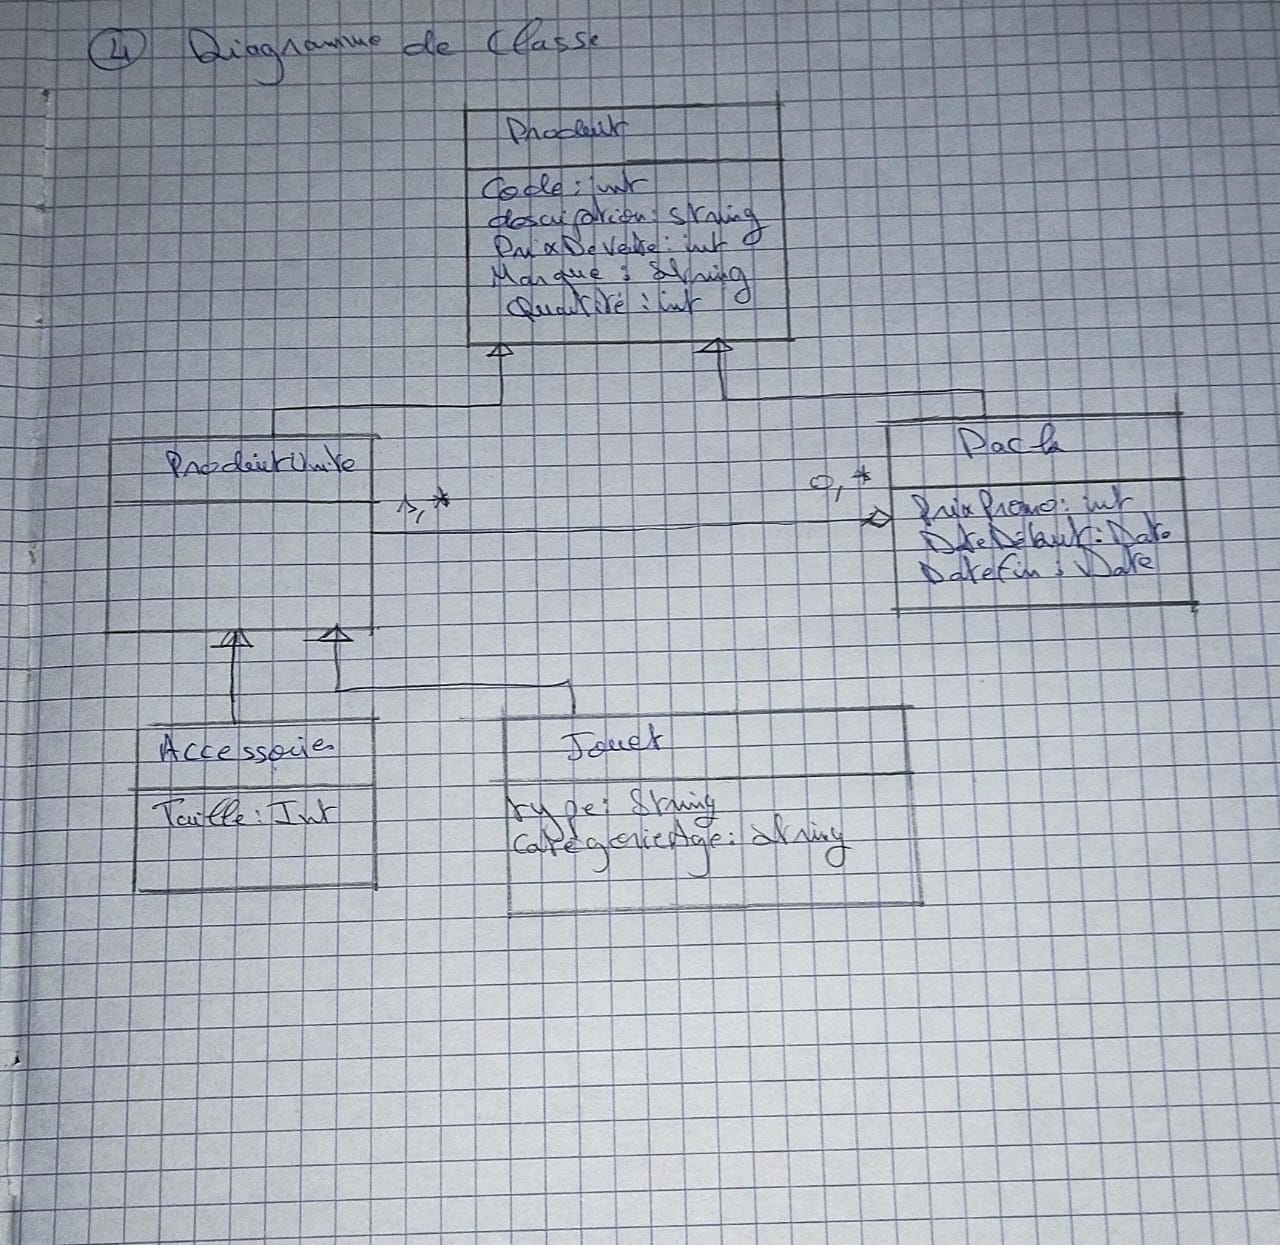 4 Diagramme de Classe
Produit
Code : int
description : String
PrixDeVente : int
Marque : String
Quantité : int
ProduitUnite
1,*
0,*
Pack
PrixPromo : int
DateDébut : Date
DateFin : Date
Accessoire
Taille : Int
Jouet
type : String
CatégorieAge : String